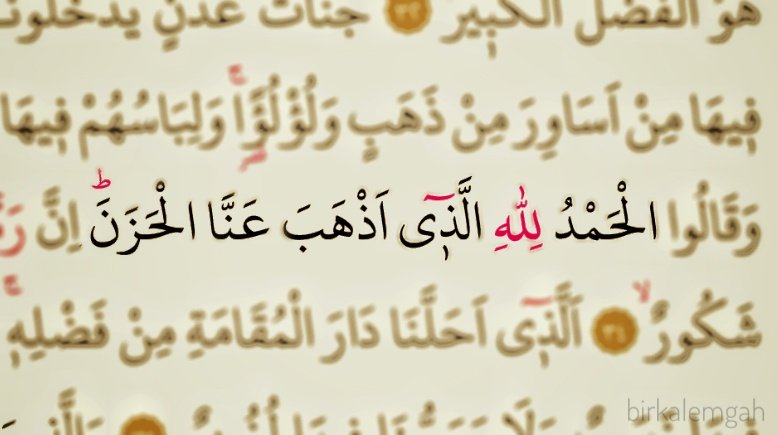 هُوَ الْفَضْلُ الْكَب۪يرُ ﴿٣٢﴾ جَنَّاتُ عَدْنٍ يَدْخُلُونَهَا
ف۪يهَا مِنْ اَسَاوِرَ مِنْ ذَهَبٍ وَلُؤْلُؤًاۚ وَلِبَاسُهُمْ ف۪يهَا
وَقَالُوا الْحَمْدُ لِلّٰهِ الَّذ۪ٓي اَذْهَبَ عَنَّا الْحَزَنَۜ اِنَّ
شَكُورٌۙ ﴿٣٤﴾ اَلَّذ۪ٓي اَحَلَّنَا دَارَ الْمُقَامَةِ مِنْ فَضْلِه۪ۚ
birkalemgah